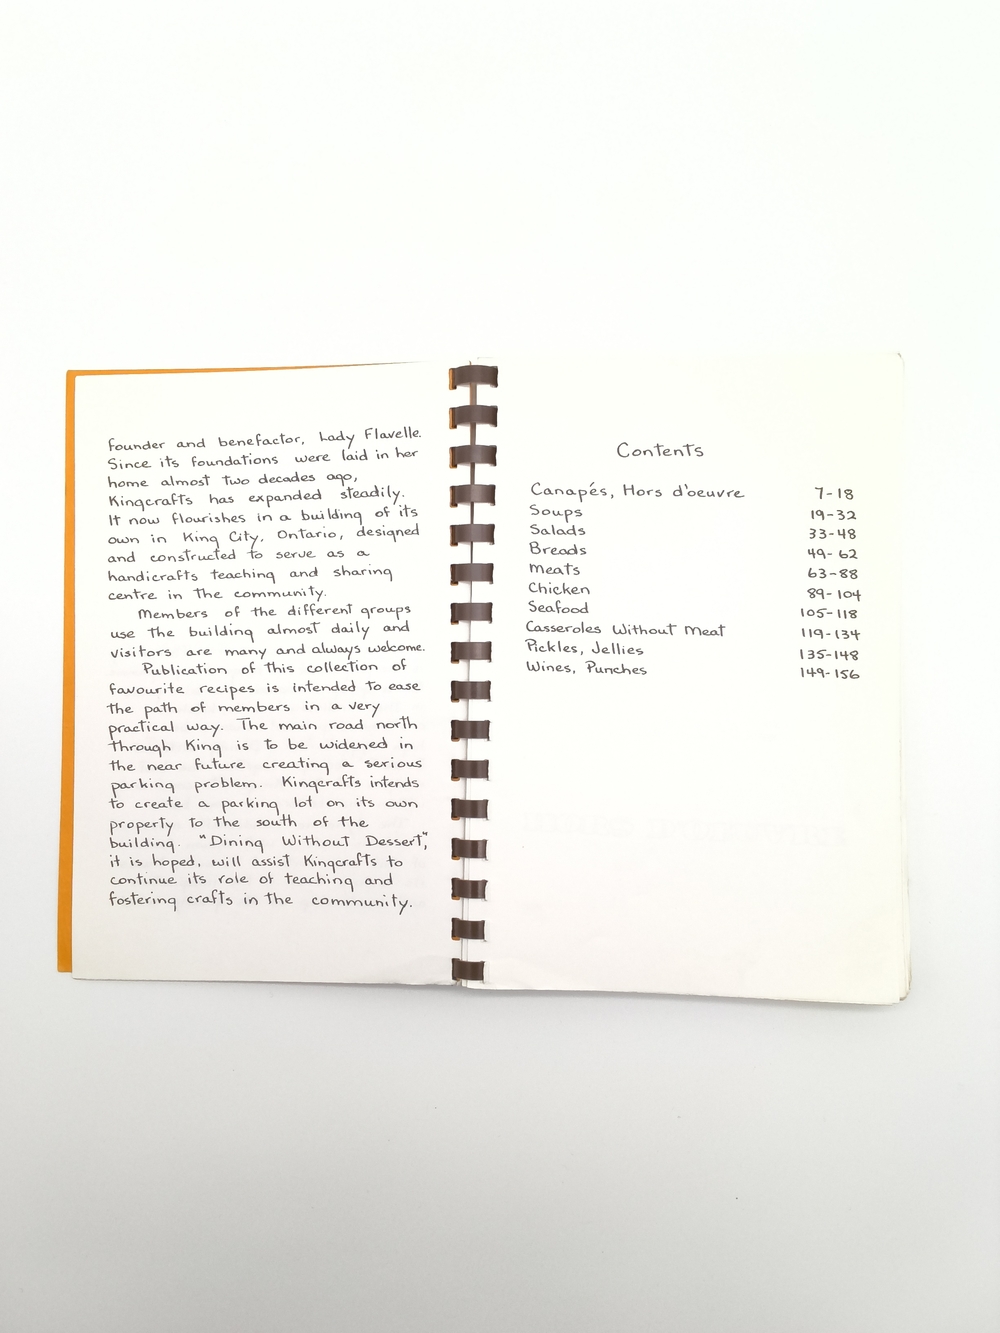 founder and benefactor, Lady Flavelle.
Since its foundations were laid in her
home almost two decades ago,
Kingcrafts has expanded steadily.
It now flourishes in a building of its
own in King City, Ontario, designed
and constructed to serve as a
handicrafts teaching and sharing
centre in the community.
Members of the different groups
use the building almost daily and
visitors are many and always welcome.
Publication of this collection of
favourite recipes is intended to ease
the path of members in a very
practical way. The main road north
through King is to be widened in
the near future creating a serious
parking problem. Kingcrafts intends
to create a parking lot on its own
property to the south of the
building. "Dining Without Dessert",
it is hoped, will assist Kingcrafts to
continue its role of teaching and
fostering crafts in the community.
Contents
Canapés, Hors d'oeuvre 7-18
Soups 19-32
Salads 33-48
Breads 49-62
Meats 63-88
Chicken 89-104
Seafood 105-118
Casseroles Without Meat 119-134
Pickles, Jellies 135-148
Wines, Punches 149-156